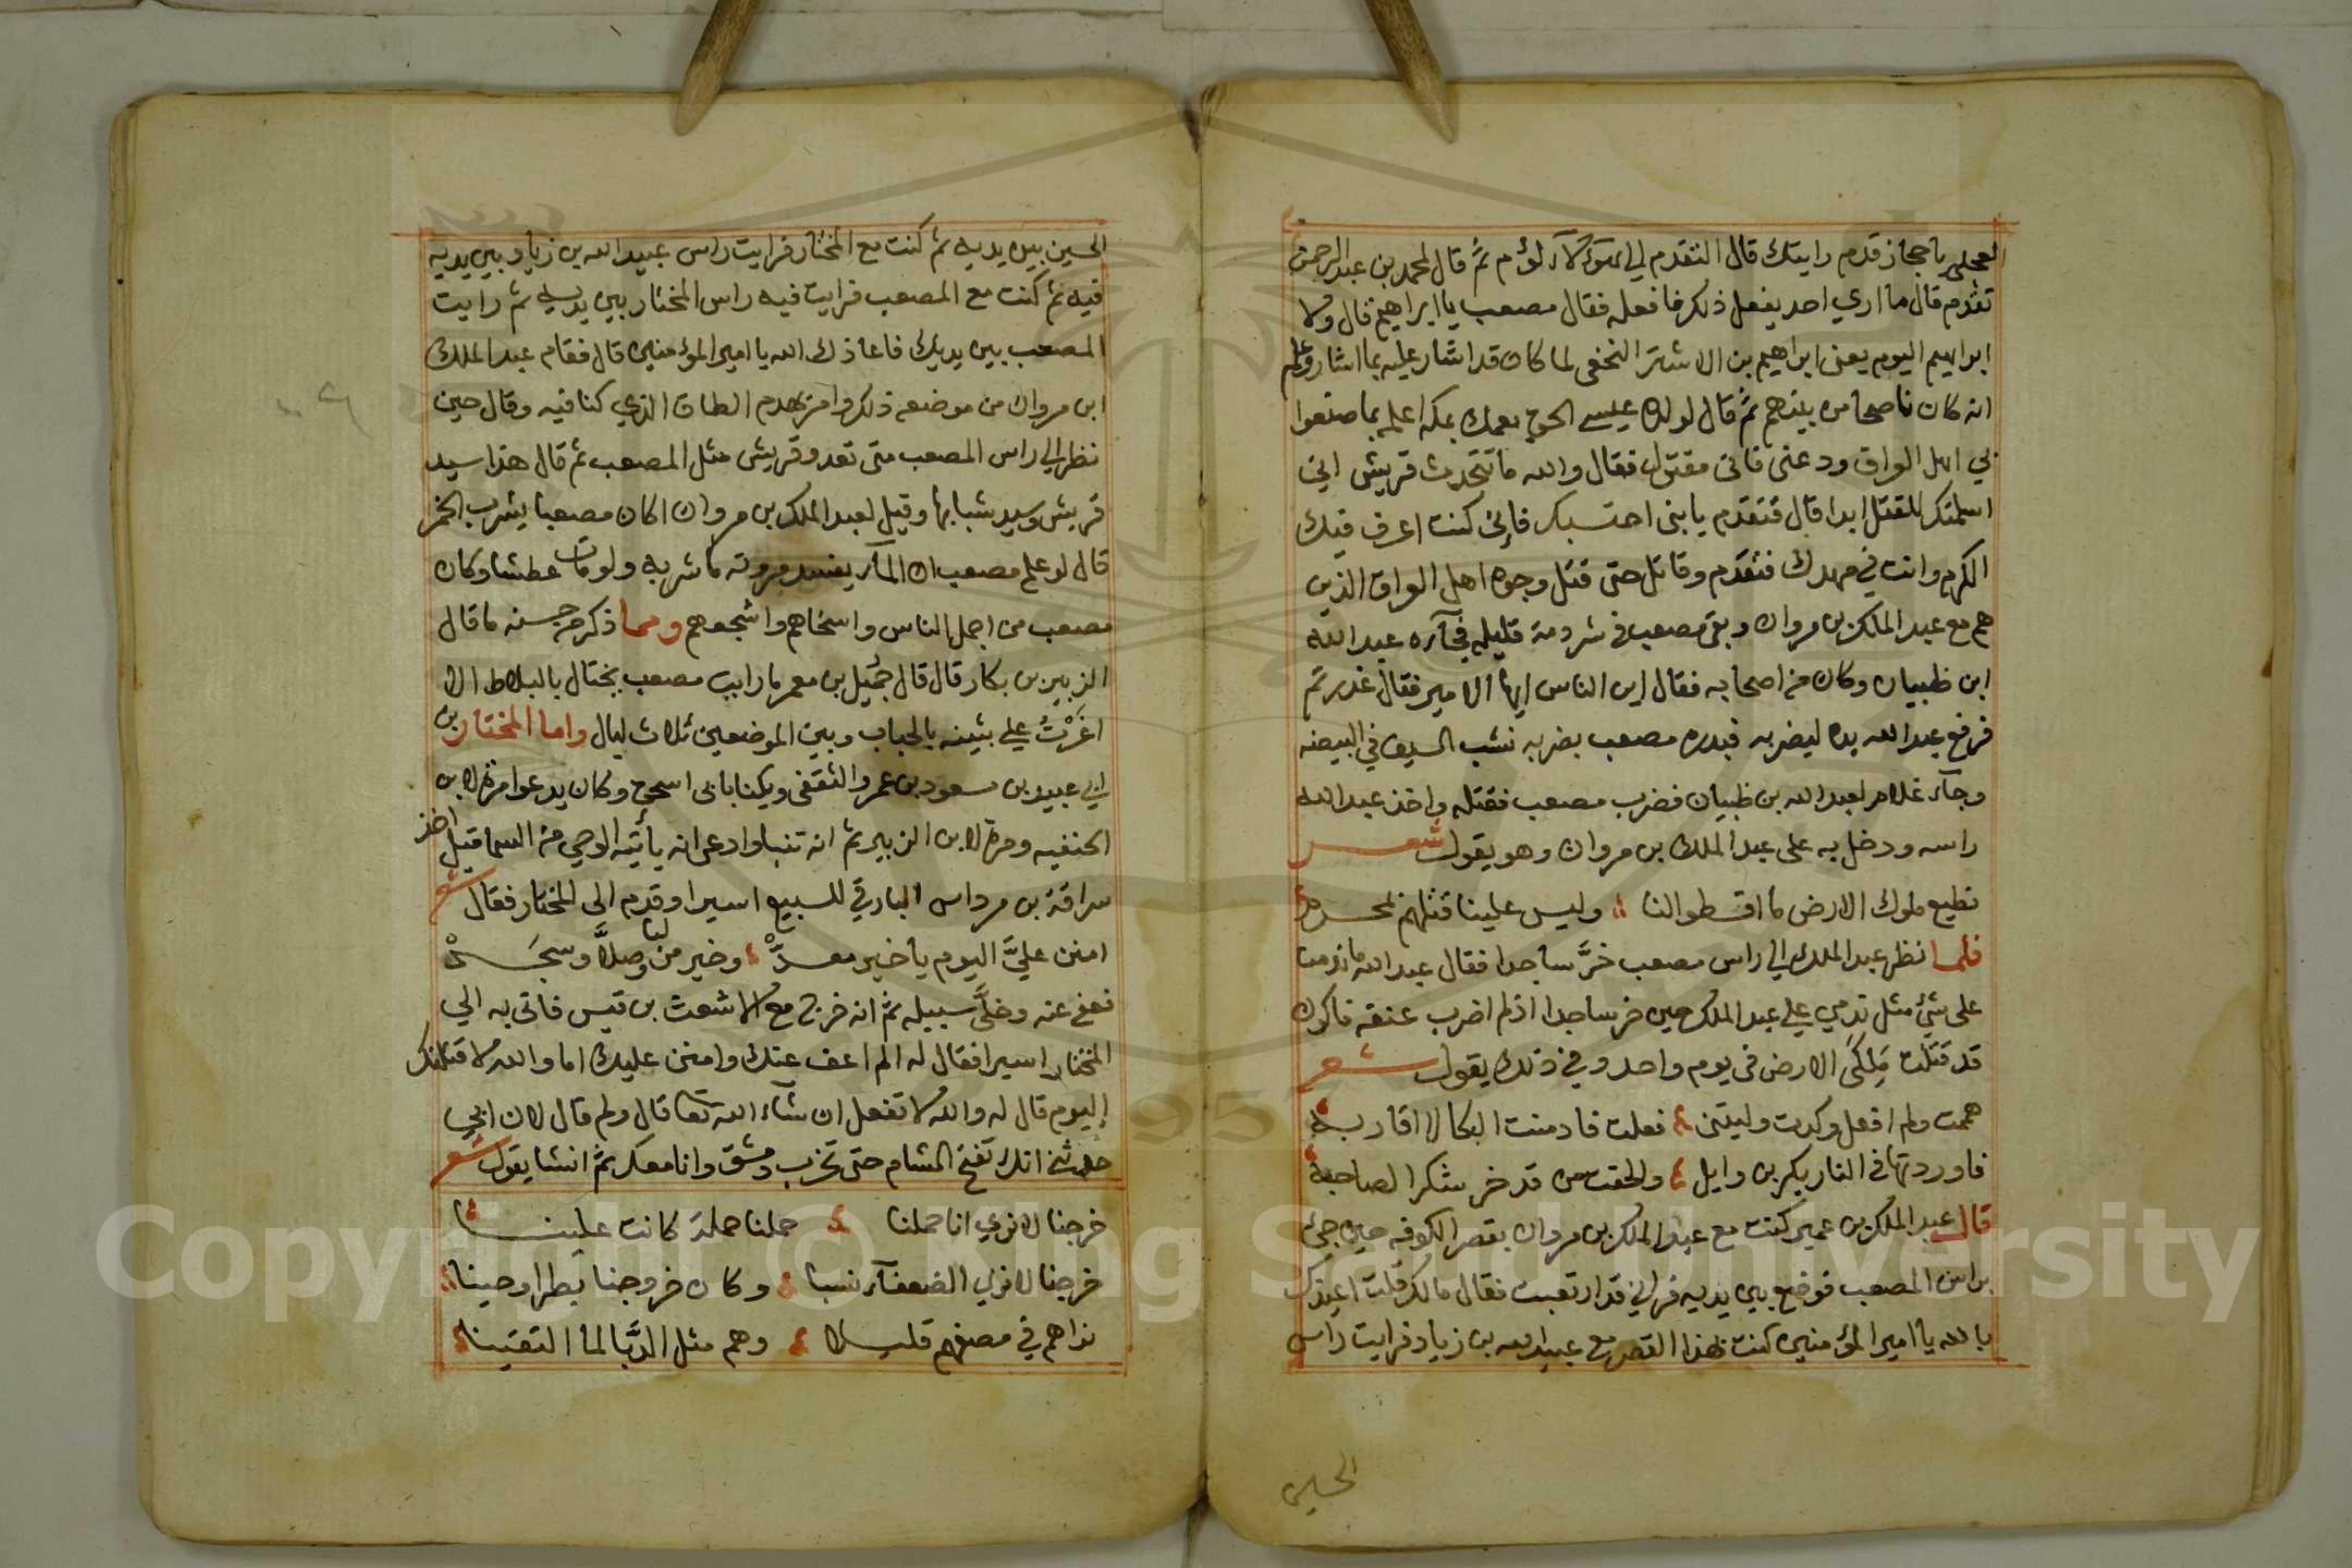 العجلي يا حجاز قدم رايتك قال التقدم الي هؤلآء لؤم ثم قال لمحمد بن عبد الرحمن
تقدم قال ما اري احد يفعل ذلك فافعله فقال مصعب يا ابراهيم قال ولا
ابراهيم اليوم يعني ابراهيم بن الاشتر النخعي لما كان قد اشار عليه بما اشار وعلم
انه كان ناصحا من بينهم ثم قال لولده عيسي الحق بعمك بمكه اعلمه بما صنعوا
بي اهل العراق ودعني فاني مقتول فقال والله ما تتحدث قريش اني
اسلمتك للقتل ابدا قال فتقدم يا بني احتسبك فإني كنت اعرف فيك
الكرم وانت في مهدك فتقدم وقاتل حتى قتل وجوه اهل العراق الذين
هم مع عبد الملك بن مروان وبقى مصعب في شرذمة قليله فجآءه عبد الله
ابن ظبيان وكان من اصحابه فقال اين الناس ايها الامير فقال غدرتم
فرفع عبد الله يده ليضربه فبدره مصعب بضربه نشب السيف في البيضه
وجآء غلام لعبد الله بن ظبيان فضرب مصعب فقتله واخذ عبد الله
راسه ودخل به على عبد الملك بن مروان وهو يقول شعر
نطيع ملوك الارض ما اقسطوا لنا وليس علينا قتلهم بمحرم
فلما نظر عبد الملك الي راس مصعب خرَّ ساجدا فقال عبد الله ما ندمت
على شئ مثل ندمي علي عبد الملك حين خر ساجدا اذ لم اضرب عنقه فاكون
قد قتلت مَلِكَي الارض في يوم واحد وفي ذلك يقول شعر
هممت ولم افعل وكدت وليتني فعلت فادمنت البكا لاقاربه
فاوردتها في النار بكر بن وايل والحقت من قد خر شكرا لصاحبه
قال عبد الملك بن عمير كنت مع عبد الملك بن مروان بقصر الكوفه حين جئ
براس المصعب فوضع بين يديه فراني قد ارتعبت فقال مالك قلت اعيذك
بالله يا امير المؤمنين كنت بهذا القصر مع عبيد الله بن زياد فرايت راس
الحسين
الحسين بين يديه ثم كنت مع المختار فرايت راس عبيد الله بن زياد بين يديه
فيه ثم كنت مع المصعب فرايت فيه راس المختار بين يديه ثم رايت
المصعب بين يديك فاعاذك الله يا امير المؤمنين قال فقام عبد الملك
ابن مروان من موضعه ذلك وامر بهدم الطاق الذي كنا فيه وقال حين
نظر الي راس المصعب متى تعدو قريش مثل المصعب ثم قال هذا سيد
قريش وسيد شبابها وقيل لعبد الملك بن مروان اكان مصعبا يشرب الخمر
قال لو علم مصعب ان المآء يفسد مروته ما شربه ولو مات عطشا وكان
مصعب من اجمل الناس واسخاهم واشجعهم ومما ذكر من حسنه ما قال
الزبير بن بكار قال قال جُميل بن معمر ما رايت مصعب يختال بالبلاط الا
اغَرْتُ علي بثينه بالجباب وبين الموضعين ثلاث ليال واما المختار بن
ابي عبيد بن مسعود بن عمر والثقفي ويكنا بابي اسحق وكان يدعوا مرة لابن
الحنفيه ومرة لابن الزبير ثم انه تنبا وادعى انه يأتيه الوحي من السما قيل اخذ
سراقة بن مرداس البارقي للسبيع اسيرا وقدم الى المختار فقال شعر
امنن عليَّ اليوم يا خير معدّْ وخير من لبا وصلَّا وسجَدْ
فعفي عنه وخلَّى سبيله ثم انه خرج مع الاشعث بن قيس فاتى به الي
المختار اسيرا فقال له الم اعف عنك وامنن عليك اما والله لا قتلنك
اليوم قال له والله لا تفعل ان شآء الله تعا قال ولم قال لان ابي
حدثني انك تفتح الشام حتى تخرب دمشق وانا معك ثم انشا يقول شعر
خرجنا لا نري انا حملنا حملنا حملة كانت علينا
خرجنا لا نري الضعفآء نسبا وكان خروجنا بطرا وحينا
نراهم في مصفهم قليلا وهم مثل الدَّبَا لما التقينا